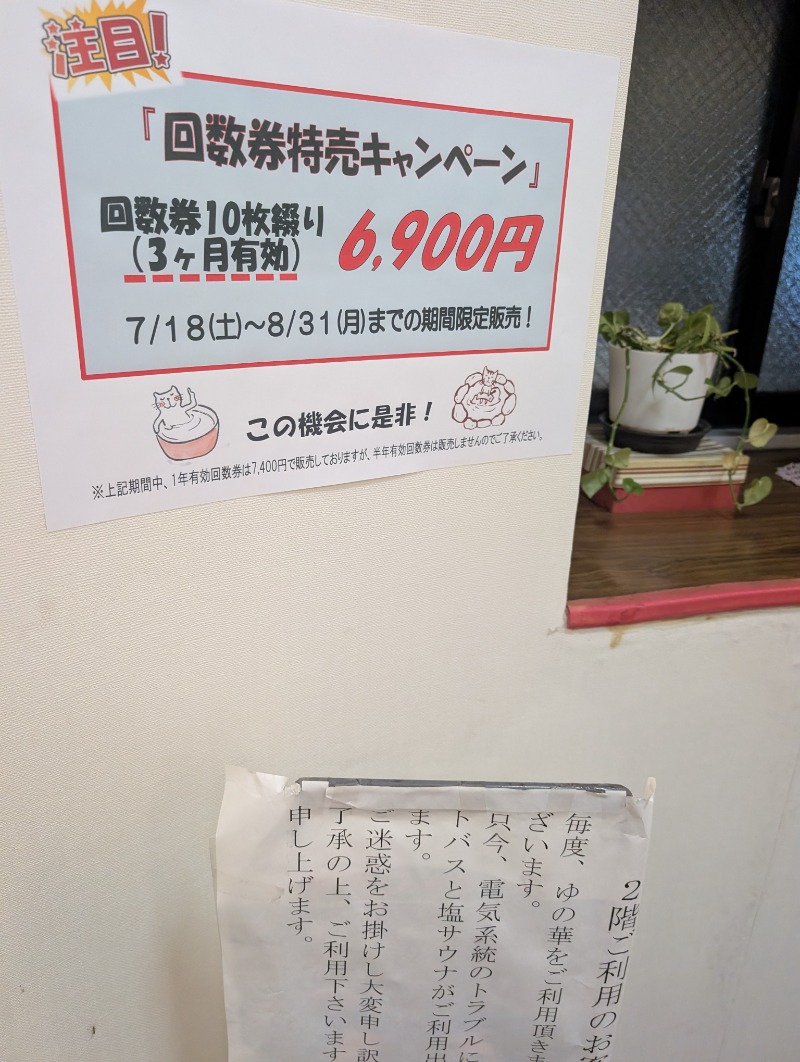 注目!
『回数券特売キャンペーン』
回数券10枚綴り
(3ヶ月有効)
6,900円
7/18(土)～8/31(月)までの期間限定販売!
この機会に是非!
※上記期間中、1年有効回数券は7,400円で販売しておりますが、半年有効回数券は販売しませんのでご了承ください。
2階ご利用のお
毎度、ゆの華をご利用頂きま
ざいます。
只今、電気系統のトラブルに
トバスと塩サウナがご利用出
ます。
ご迷惑をお掛けし大変申し訳
了承の上、ご利用下さいます
申し上げます。